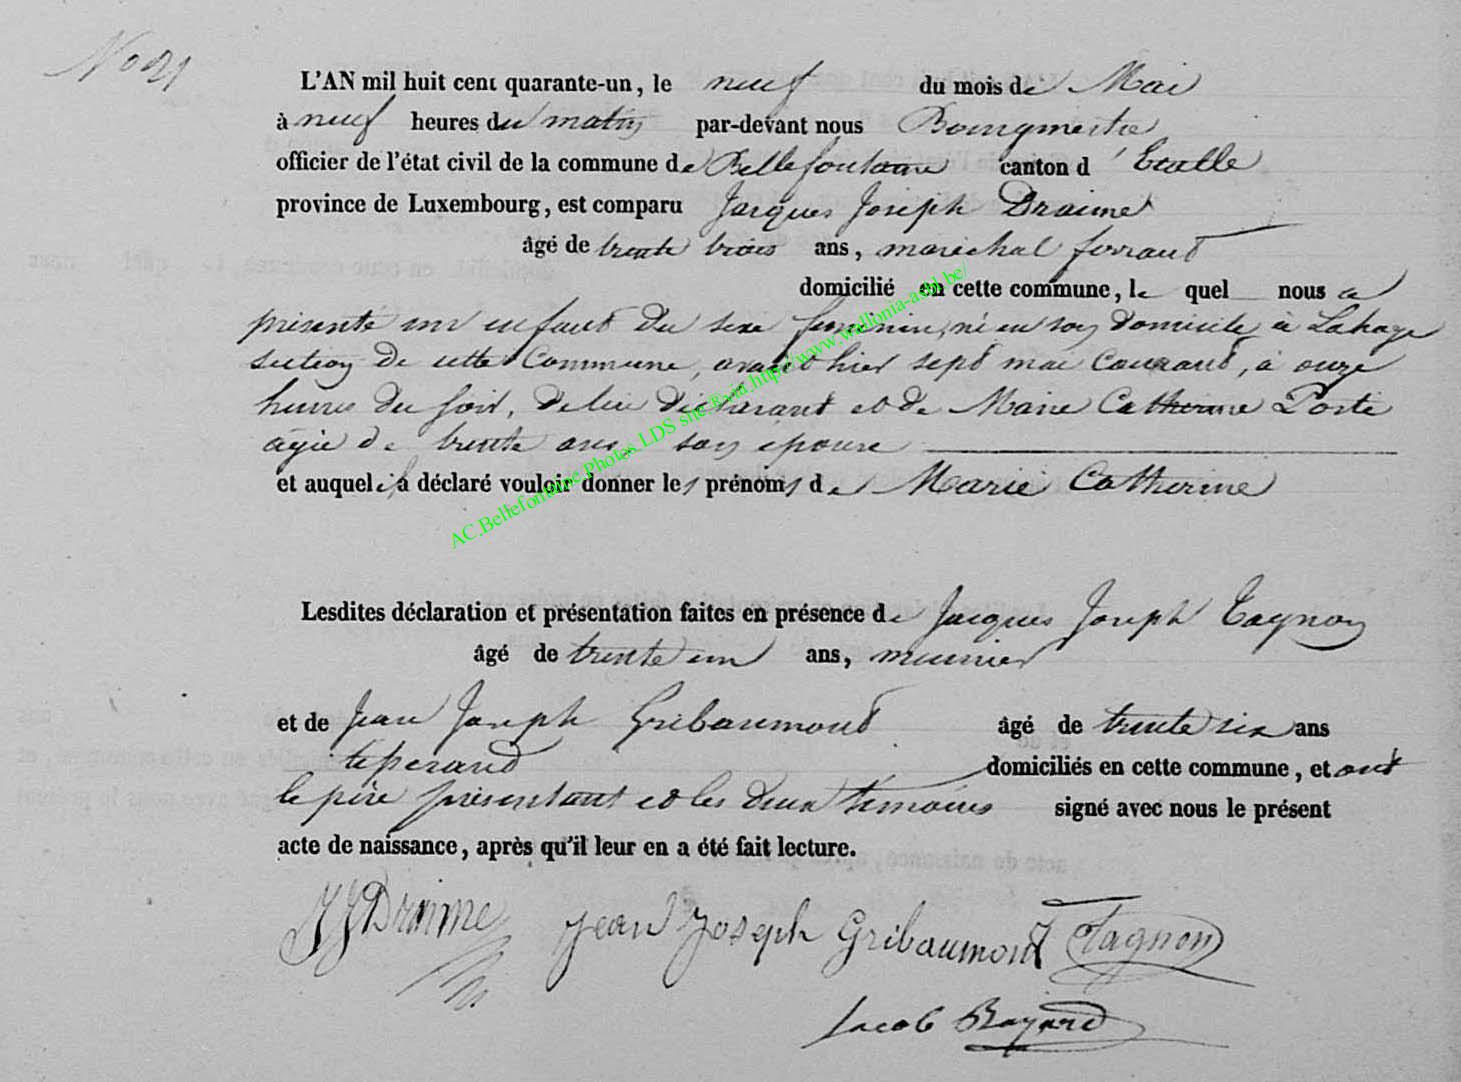 No 21
L'AN mil huit cent quarante-un, le neuf du mois de Mai
à neuf heures du matin par-devant nous Bourgmestre
officier de l'état civil de la commune de Bellefontaine canton d'Etalle
province de Luxembourg, est comparu Jacques Joseph Draime
âgé de trente trois ans, maréchal ferrant
domicilié en cette commune, le quel nous a
présenté un enfant du sexe feminin, né en son domicile à Lahage
section de cette Commune, avant hier sept mai Courant, à onze
heures du soir, de lui déclarant et de Marie Catherine Porte
agée de trente ans son épouse
et auquel il a déclaré vouloir donner les prénoms de Marie Catherine
AC.Bellefontaine.Photos LDS site:&via http://www.wallonia-asbl.be/
Lesdites déclaration et présentation faites en présence de Jacques Joseph Tagnon
âgé de trente un ans, meunier
et de Jean Joseph Gribaumont âgé de trente six ans
domiciliés en cette commune, et ont
le père présentant et les deux témoins signé avec nous le présent
acte de naissance, après qu'il leur en a été fait lecture.
JJ Draime Jean Joseph Gribaumont Tagnon
Jacob Bayard